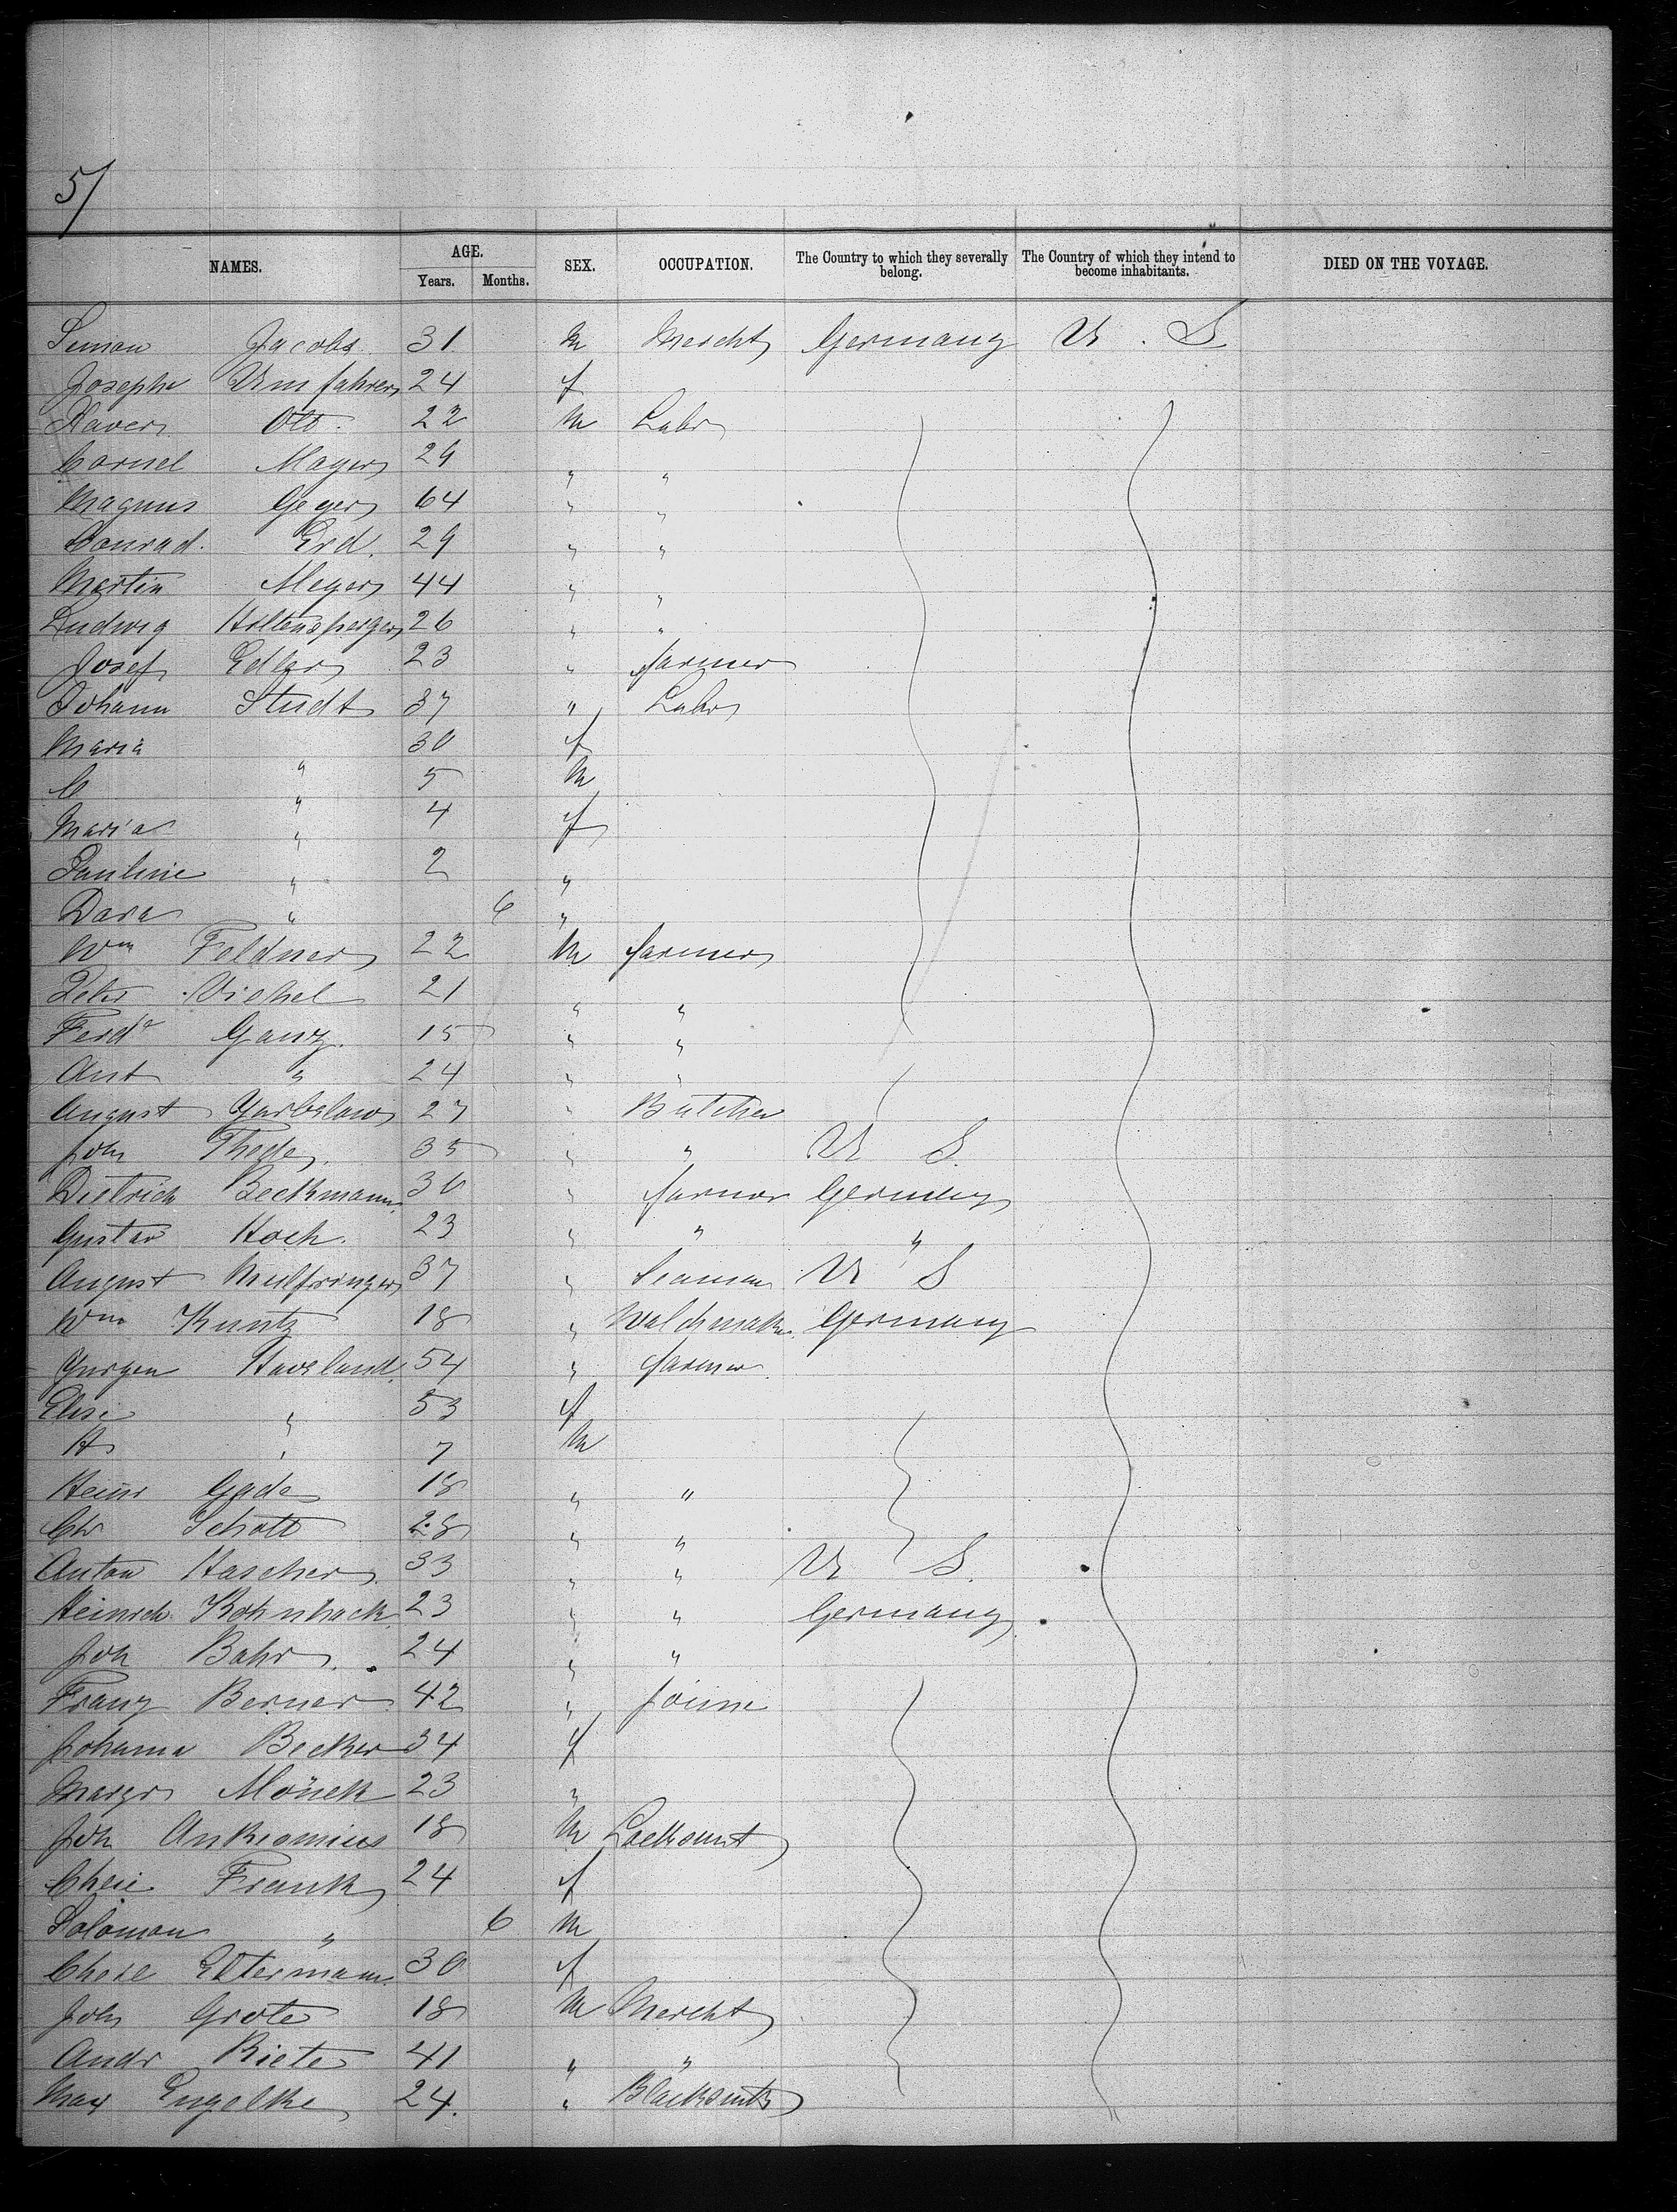 5/
NAMES. AGE. Years. Months. SEX. OCCUPATION. The Country to which they severally belong. The Country of which they intend to become inhabitants. DIED ON THE VOYAGE.
Simon Jacobs 31 m Mercht Germany U. S
Josepha Umfahrer 24 f
Xaver Ott 22 m Labr
Cornel Mayer 29 " "
Magnus Geyer 64 " "
Conrad Erd. 29 " "
Martin Meyer 44 " "
Ludwig Hiltensperger 26 " "
Josef Edler 23 " farmer
Johann Studt 37 " Labr
Maria " 30 f
C " 5 m
Maria " 4 f
Pauline " 2 "
Dora " 6 "
Wm Feldner 22 m farmer
Peter Vichel 21 " "
Ferd Ganz 15 " "
Aut " 24 " "
August 27 " Butcher
Joh Thede 35 " " U S.
Dietrich Beckmann 30 " farmer Germany
Gustav Hoch. 23 " " "
August 37 " Seaman U S
Wm Kuntz 18 " Germany
Jurgen Haveland 54 " farmer
Elise " 53 f
H " 7 m
Heinr Gade 18 " "
Chr Schott 28 " "
Anton Hascher 33 " " U S.
Heinrich Kohnhack 23 " " Germany
Joh Bahr 24 " "
Franz Berner 42 " Joiner
Johanna Becker 34 f
Margr Mönck 23 "
Joh 18 m
Frank 24 f
Salomon " 6 m
30 f
Joh Grote 18 m Mercht
Andr Riete 41 " "
Max Engelke 24. " Blacksmith